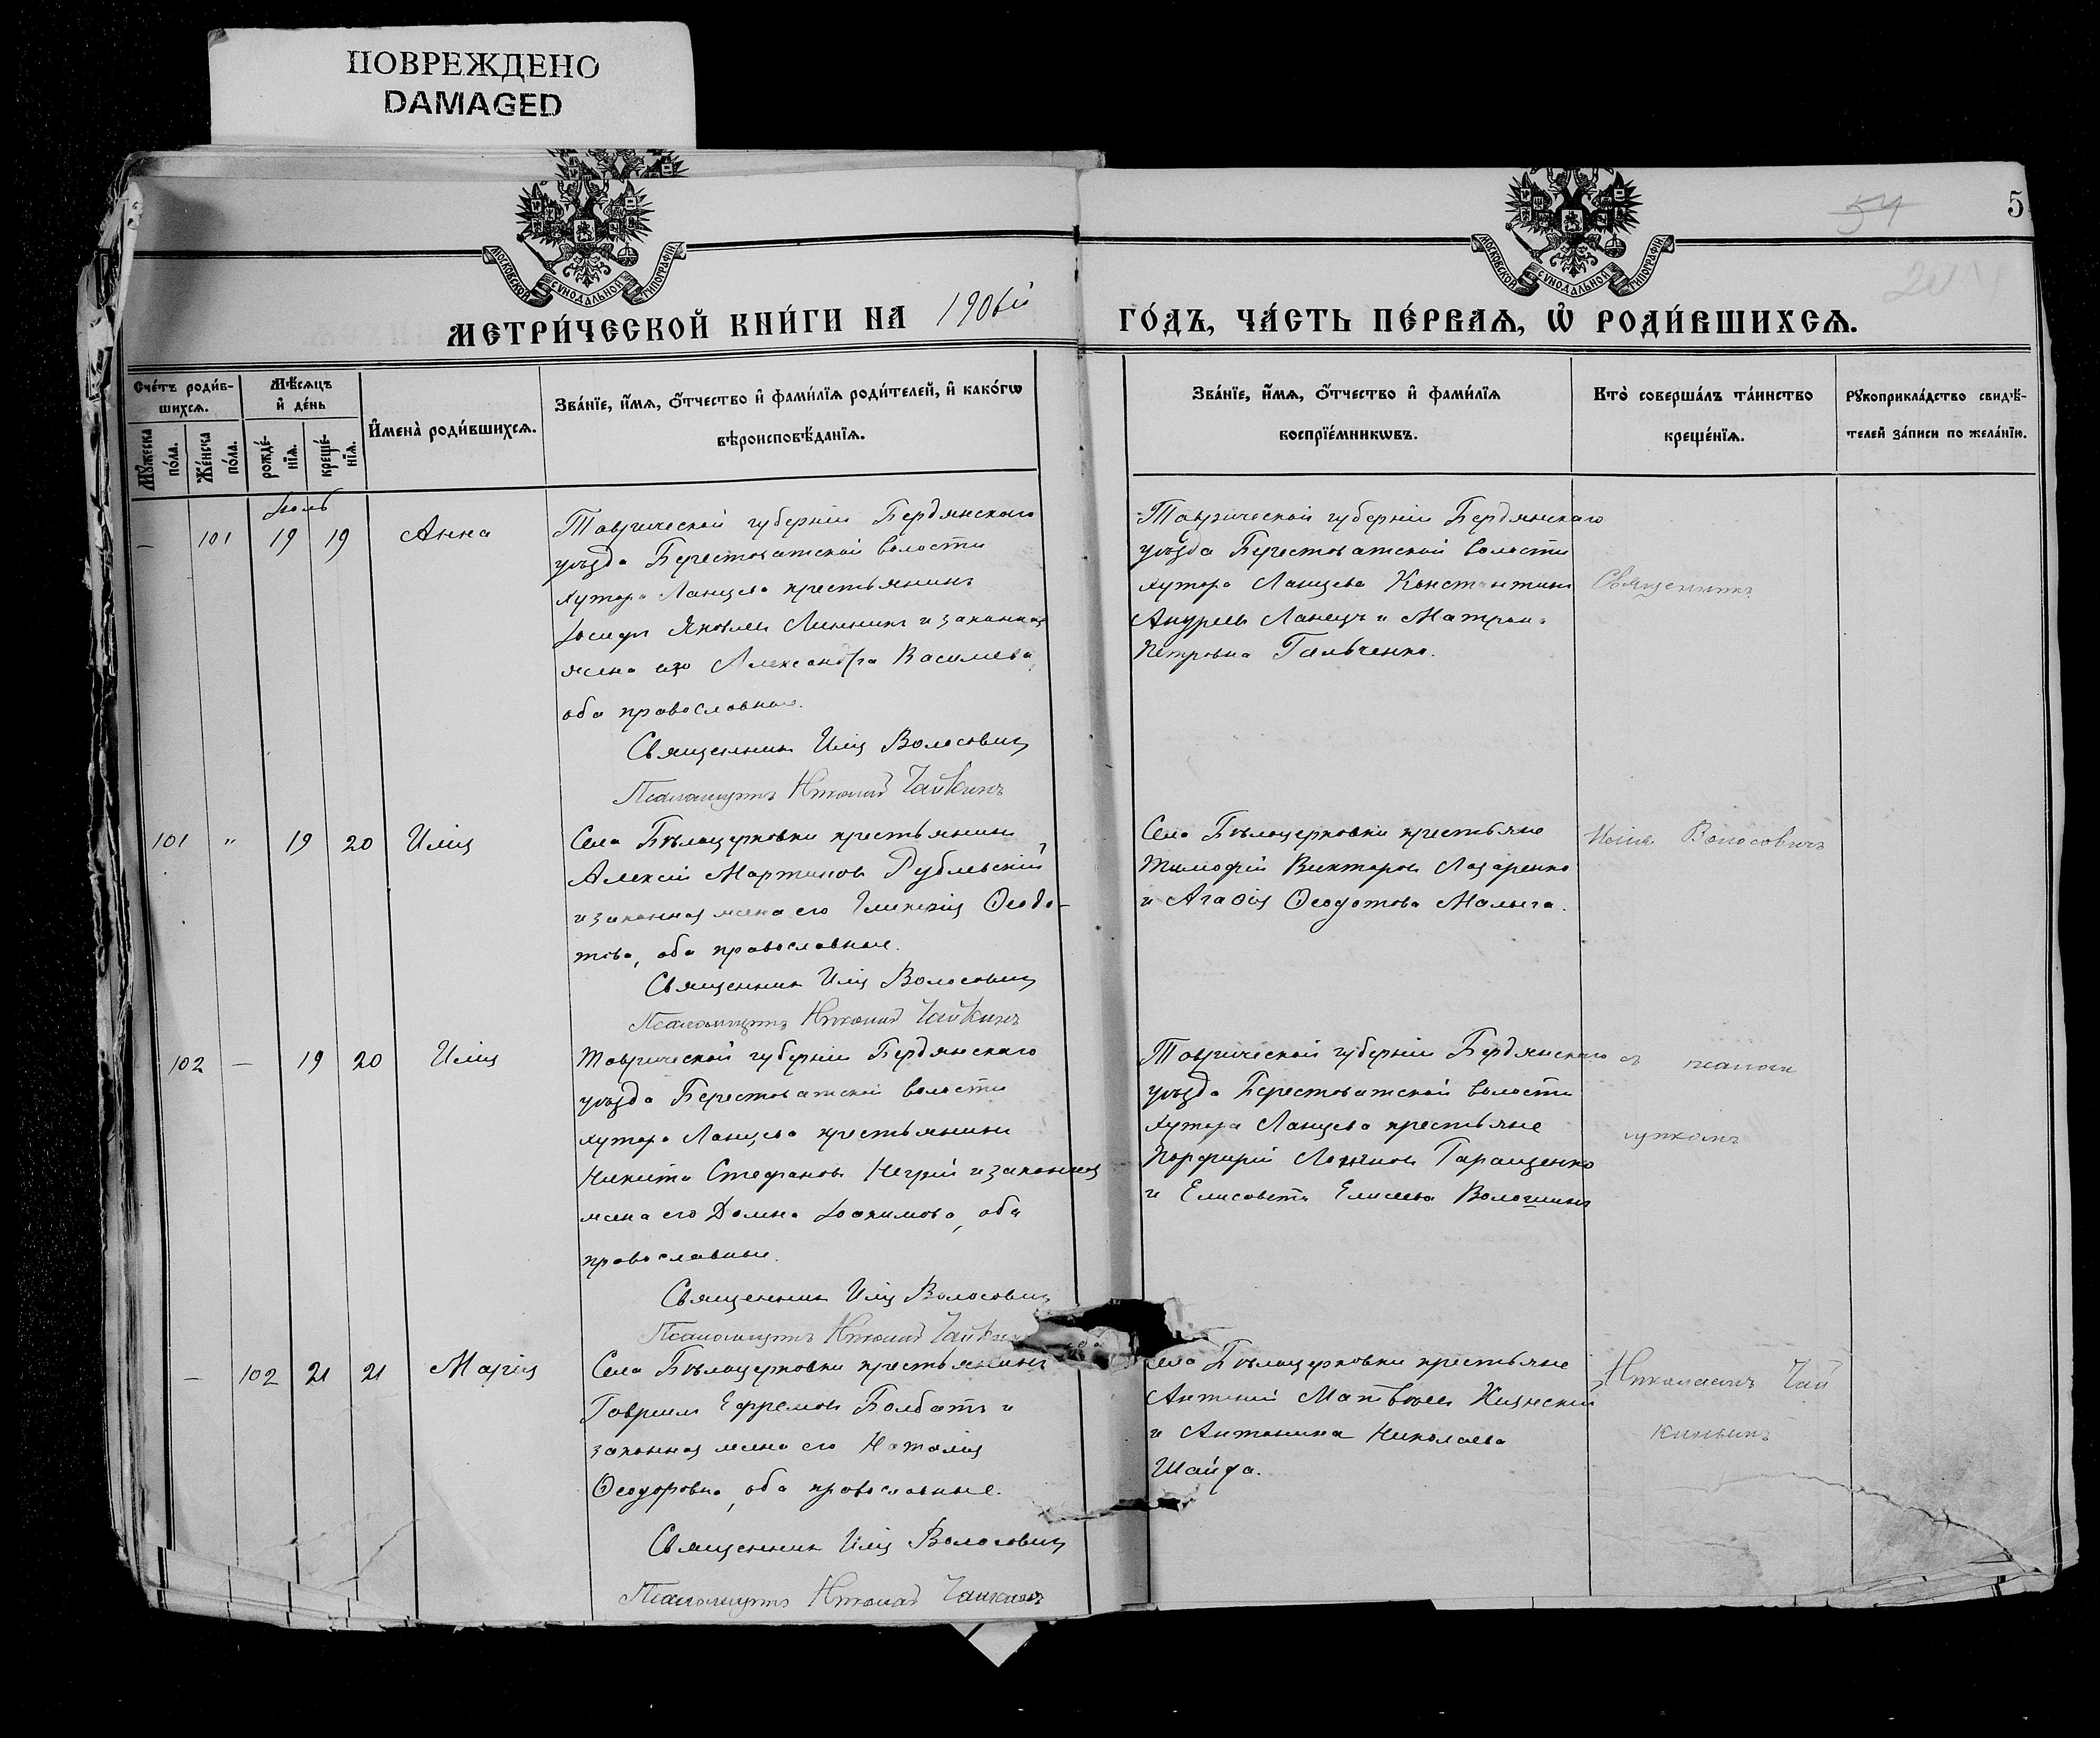 ПОВРЕЖДЕНО
DAMAGED
МОСКОВСКОЙ СѴНОДАЛЬНОЙ ТИПОГРАФІИ
МОСКОВСКОЙ СѴНОДАЛЬНОЙ ТИПОГРАФІИ
54
5
МЕТРИ́ЧЕСКОЙ КНИ́ГИ НА 1906й
ГО́ДЪ, ЧА́СТЬ ПЕ́РВАѦ, Ѡ РОДИ́ВШИХСѦ.
Сче́тъ роди́в-
шихсѧ.
Мꙋ́жеска по́ла.
Же́нска по́ла.
Мѣ́сѧцъ
и҆ де́нь
рожде́-нїѧ.
креще́-нїѧ.
И҆мена̀ роди́вшихсѧ.
Зва́нїе, и҆́мѧ, ѻ҆́тчество и҆ фами́лїѧ роди́телей, и҆ како́гѡ
вѣроисповѣ́данїѧ.
Зва́нїе, и҆́мѧ, ѻ҆́тчество и҆ фами́лїѧ
воспрїе́мникѡвъ.
Кто̀ соверша́лъ та́инство
креще́нїѧ.
Рꙋкоприкла́дство свидѣ́-
телей за́писи по жела́нїю.
Іюль
— 101 19 19 Анна
Таврической губерніи Бердянскаго
уѣзда Берестоватской волости
хутора Ланцева крестьянинъ
Іосифъ Яковлевъ Линникъ и законная
жена его Александра Васильева,
оба православные.
Священникъ Илія Волосовичъ
Псаломщикъ Николай Чайкинъ
Таврической губерніи Бердянскаго
уѣзда Берестоватской волости
хутора Ланцева Константинъ
Андреевъ Ланецъ и Матрона
Петровна Гальченко.
Священникъ
101 " 19 20 Илія
Села Бѣлоцерковки крестьянинъ
Алексій Мартиновъ Рублевскій
и законная жена его Гликерія Ѳеодо-
това, оба православные.
Священникъ Илія Волосовичъ
Псаломщикъ Николай Чайкинъ
Села Бѣлоцерковки крестьяне
Тимофій Викторовъ Лазаренко
и Агаѳія Ѳеодотова Малыга.
Илія Волосовичъ
102 — 19 20 Илія
Таврической губерніи Бердянскаго
уѣзда Берестоватской волости
хутора Ланцева крестьянинъ
Никита Стефановъ Негрій и законная
жена его Домна Іоакимова, оба
православные.
Священникъ Илія Волосовичъ
Псаломщикъ Николай Чайкинъ
Таврической губерніи Бердянскаго
уѣзда Берестоватской волости
хутора Ланцева крестьяне
Порфирій Логиновъ Геращенко
и Елисавета Елисеева Волошинъ
съ псалом
щикомъ
— 102 21 21 Марія
Села Бѣлоцерковки крестьянинъ
Гавріилъ Ефремовъ Болбатъ и
законная жена его Наталія
Ѳеодоровна, оба православные.
Священникъ Илія Волосовичъ
Псаломщикъ Николай Чайкинъ
Села Бѣлоцерковки крестьяне
Антоній Матвѣевъ
и Антонина Николаева
Шайда.
Николаемъ Чай
кинымъ